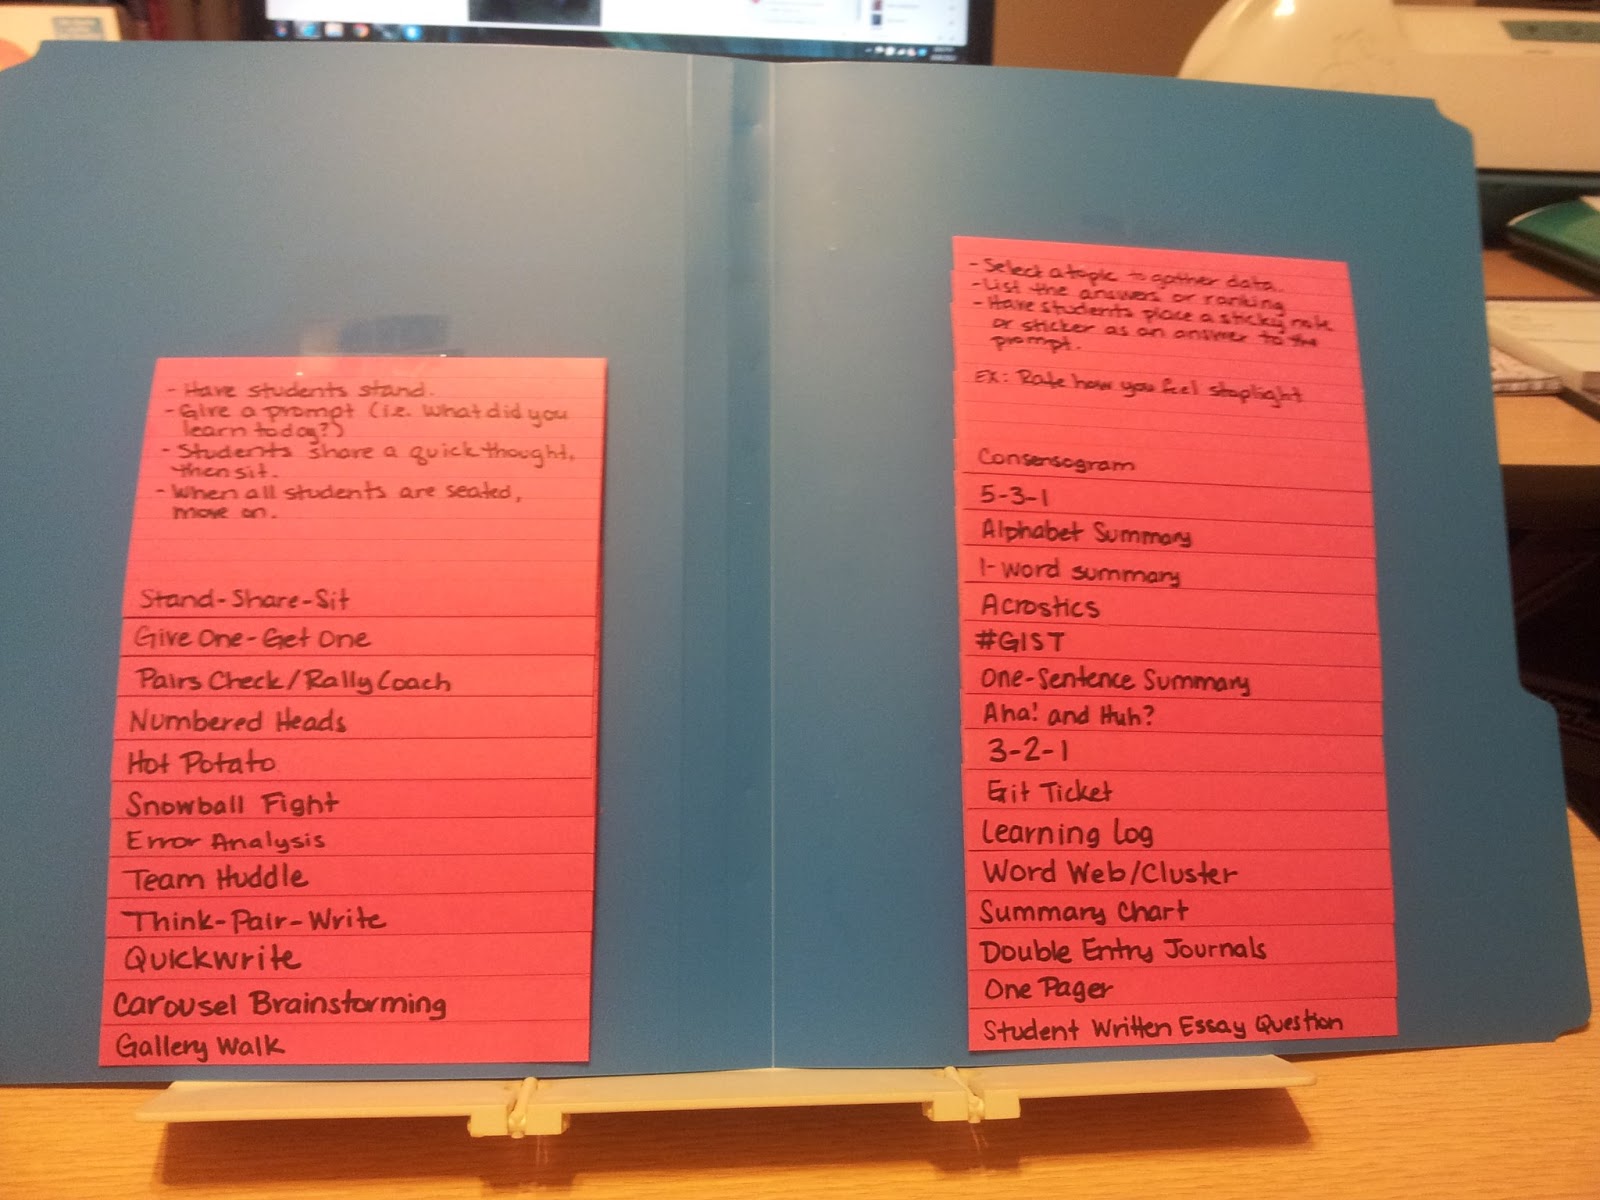 - Have students stand.
- Give a prompt (i.e. What did you
learn today?)
- Students share a quick thought,
then sit.
- When all students are seated,
move on.
Stand-Share-Sit
Give One-Get One
Pairs Check/Rally Coach
Numbered Heads
Hot Potato
Snowball Fight
Error Analysis
Team Huddle
Think-Pair-Write
Quickwrite
Carousel Brainstorming
Gallery Walk
- Select a topic to gather data.
- List the answers or ranking
- Have students place a sticky note
or sticker as an answer to the
prompt.
EX: Rate how you feel stoplight
Consensogram
5-3-1
Alphabet Summary
1-word summary
Acrostics
#GIST
One-Sentence Summary
Aha! and Huh?
3-2-1
Exit Ticket
Learning Log
Word Web/Cluster
Summary Chart
Double Entry Journals
One Pager
Student Written Essay Question